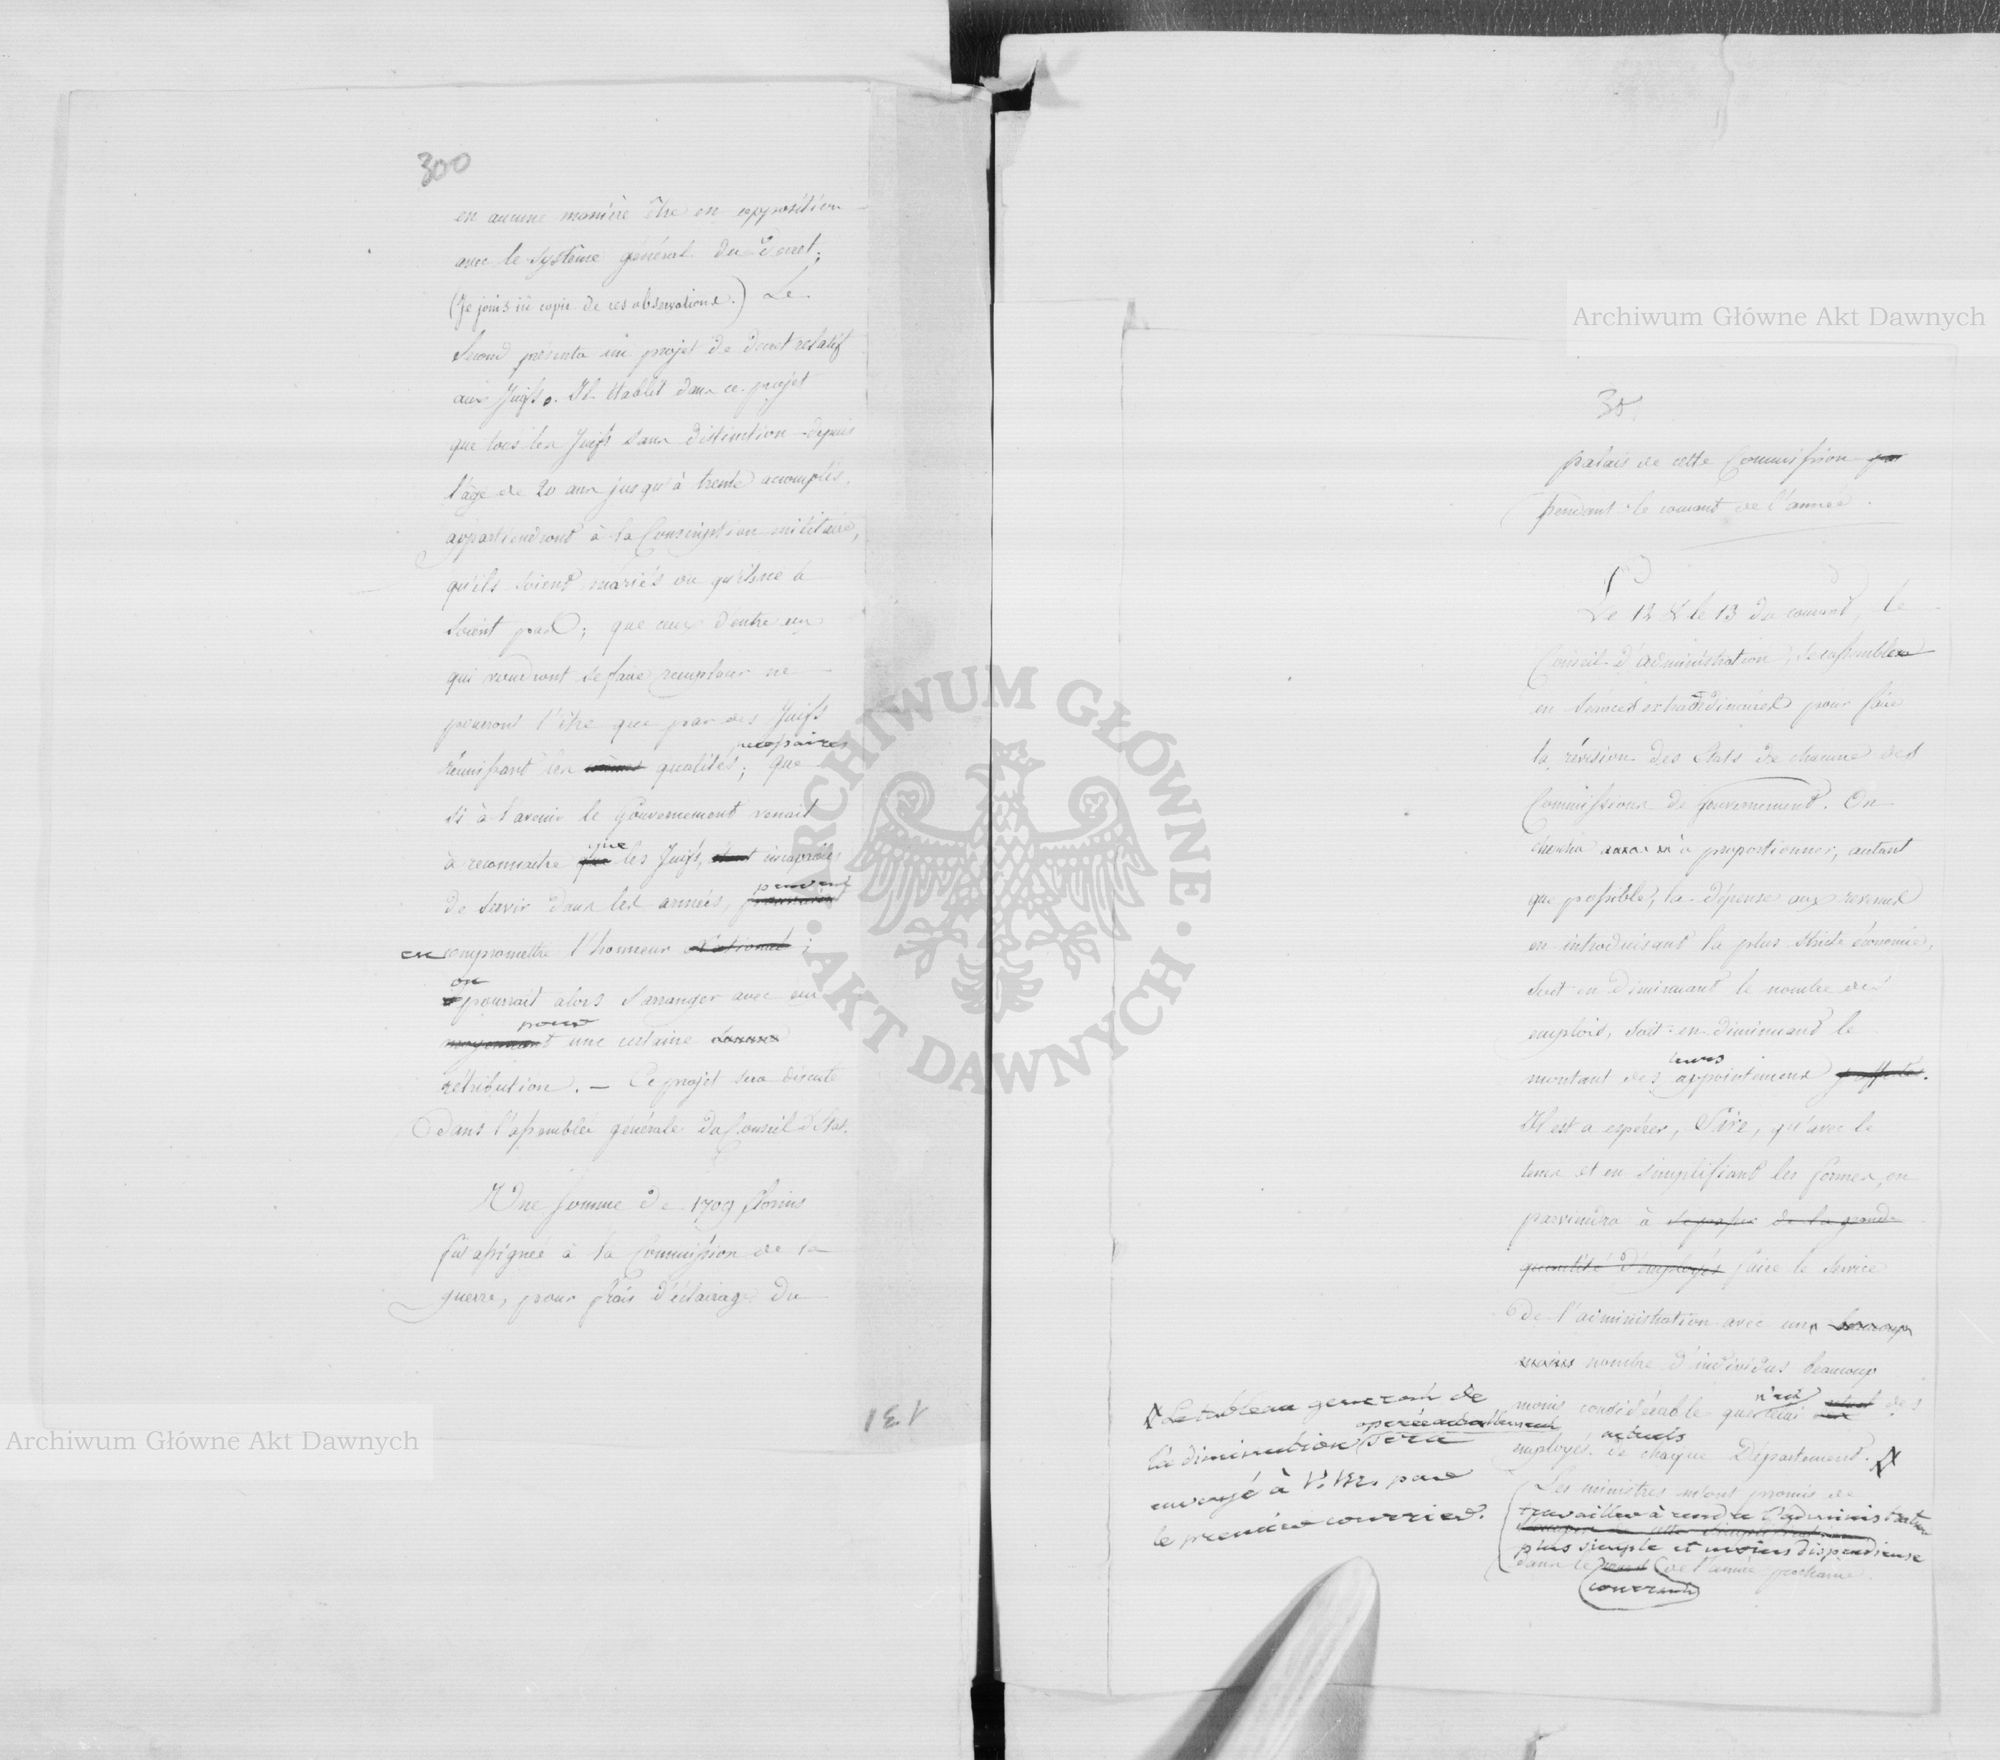 300
en aucune manière être en opposition
avec le Système général du Decret;
(Je joins ici copie de ces observations.) Le
Second présenta un projet de decret relatif
aux Juifs. Il etablit dans ce projet
que tous les Juifs sans distinction depuis
l'âge de 20 ans jusqu'à trente accomplis,
appartiendront à la Conscription militaire,
qu'ils soient mariés ou qu'ils ne le
soient pas; que ceux d'entre eux
qui voudront se faire remplacer ne
pourront l'être que par des Juifs
necessaires
réunissant les mêmes qualités; que
si à l'avenir le Gouvernement venait
que
à reconnaitre que les Juifs, incapables
peuvent
de servir dans les armées,
en compromettre l'honneur national;
on
pourrait alors s'arranger avec eux
pour
moyennant une certaine somme
rétribution. — Ce projet sera discuté
dans l'assemblée générale du Conseil d'Etat.
Une somme de 1709 florins
fut assignée à la Commission de la
guerre, pour frais d'éclairage du
131
Archiwum Główne Akt Dawnych
Archiwum Główne Akt Dawnych
ARCHIWUM GŁÓWNE · AKT DAWNYCH ·
palais de cette Commission
pendant le courant de l'année.
Le 12 & le 13 du courant, le
Conseil d'administration, se rassembla
en séances extraordinaires pour faire
la révision des Etats de chacune des
Commissions de Gouvernement. On
chercha à proportionner, autant
que possible, la dépense aux revenus
en introduisant la plus stricte économie,
soit en diminuant le nombre des
emplois, soit en diminuant le
leurs
montant des appointemens
Il est a espérer, Sire, qu'avec le
tems et en simplifiant les formes, on
parviendra à se passer de la grande
quantité d'employés faire le service
de l'administration avec un beaucoup
moins nombre d'individus beaucoup
moins considérable que des
actuels
employés de chaque Département.
Les ministres m'ont promis de
travailler à rendre l'administration
plus simple et moins dispendieuse
dans le de l'année prochaine.
courant
Le tableau general de
operée actuellement
la diminution sera
envoyé à V. M. par
le premier courrier.